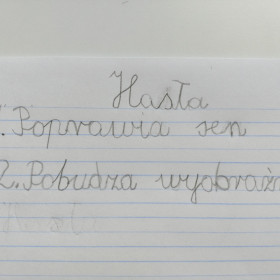 Hasła
. Poprawia sen
2. Pobudza wyobraź